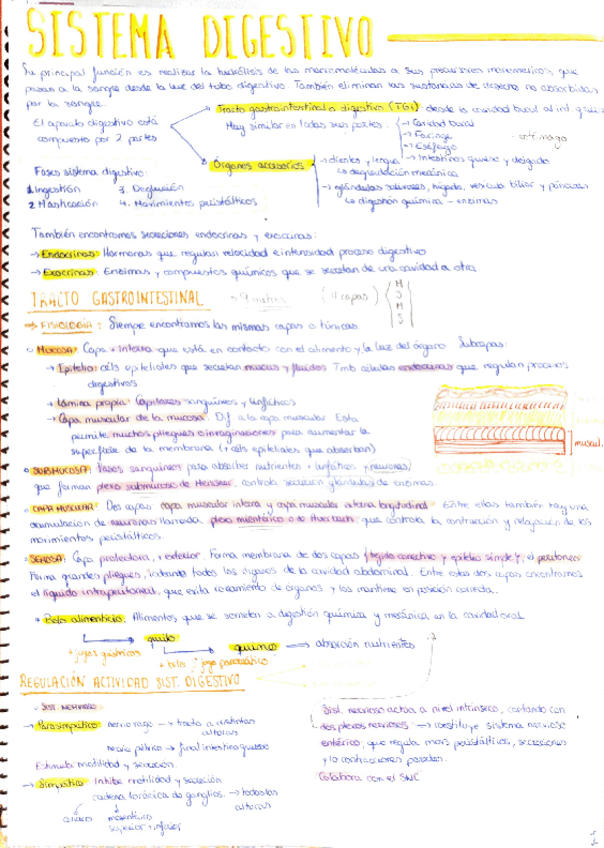 SISTEMA DIGESTIVO
Su principal función es realizar la hidrólisis de las macromoléculas a sus precursores monoméricos, que
pasan a la sangre desde la luz del tubo digestivo. También eliminan las sustancias de desecho no absorbidas
por la sangre.
Tracto gastrointestinal o digestivo (TGI): desde la cavidad bucal al int. grueso
El aparato digestivo está
compuesto por 2 partes
Muy similar en todas sus partes.
→ Cavidad bucal
→ Faringe
→ Esófago
→ estómago
→ Intestinos grueso y delgado
Órganos accesorios
→ dientes y lengua
↳ degradación mecánica
→ glándulas salivares, hígado, vesícula biliar y páncreas
↳ digestión química - enzimas
Fases sistema digestivo:
1. Ingestión 3. Deglución
2. Masticación 4. Movimientos peristálticos
También encontramos secreciones endocrinas y exocrinas:
→ Endocrinas: Hormonas que regulan velocidad e intensidad proceso digestivo
→ Exocrinas: Enzimas y compuestos químicos que se secretan de una cavidad a otra
TRACTO GASTROINTESTINAL → 9 metros (4 capas) M S M S
→ FISIOLOGÍA: Siempre encontramos las mismas capas o túnicas.
○ MUCOSA: Capa + interna que está en contacto con el alimento y la luz del órgano. Subcapas:
→ Epitelio: céls epiteliales que secretan mucus y fluidos. Tmb células endocrinas que regulan procesos
digestivos
→ Lámina propia: Capilares sanguíneos y linfáticos
→ Capa muscular de la mucosa: Dif a la capa muscular. Esta
permite muchos pliegues o invaginaciones para aumentar la
superficie de la membrana (+ céls epiteliales que absorban)
muscul.
○ SUBMUCOSA: Vasos sanguíneos para absorber nutrientes + linfáticos y neuronas
que forman plexo submucoso de Meissner, controla secreción glándulas de enzimas.
○ CAPA MUSCULAR: Dos capas: capa muscular interna y capa muscular externa longitudinal. Entre ellas también hay una
acumulación de neuronas llamada plexo mientérico o de Auerbach, que controla la contracción y relajación de los
movimientos peristálticos.
○ SEROSA: Capa protectora, + exterior. Forma membrana de dos capas (tejido conectivo y epitelio simple), el peritoneo.
Forma grandes pliegues, rodeando todos los órganos de la cavidad abdominal. Entre estas dos capas encontramos
el líquido intraperitoneal, que evita rozamiento de órganos y los mantiene en posición correcta.
+ Bolo alimenticio: Alimentos que se someten a digestión química y mecánica en la cavidad oral
quilo
quimo → absorción nutrientes
+ jugos gástricos
+ bilis + jugo pancreático
REGULACIÓN ACTIVIDAD SIST. DIGESTIVO
○ SIST. NERVIOSO
→ Parasimpático: nervio vago → tracto a distintas
alturas
nervio pélvico → final intestino grueso
Estimula motilidad y secreción.
→ Simpático: Inhibe motilidad y secreción
cadena torácica de ganglios. → todas las
alturas
celíaco mesentérico
superior + inferior
Sist. nervioso actúa a nivel intrínseco, contando con
dos plexos nerviosos → constituye sistema nervioso
entérico, que regula movs peristálticos, secreciones
y las contracciones paredes.
Colabora con el SNC